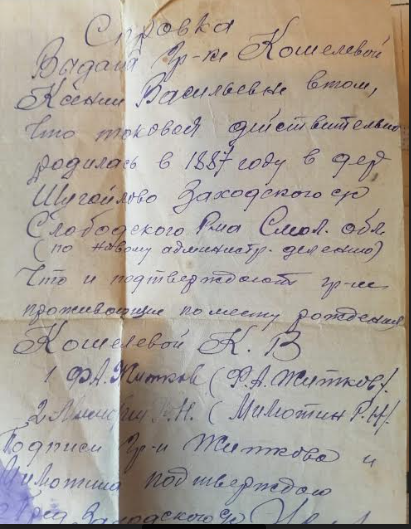 Справка
Выдана гр-ке Кошелевой
Ксении Васильевне в том,
Что таковая действительно
родилась в 1887 году в дер
Шугайлово Заходского с/с
Слободского р-на Смол. обл.
(по новому администр. делению)
Что и подтверждают гр-не
проживающие по месту рождения
Кошелевой К. В
1 Ф.А.Житков (Ф.А.Житков/.
2 (Милютин Р.Н/.
Подписи гр-н Житкова и
Милютина подтверждаю
Пред Заходского с/с